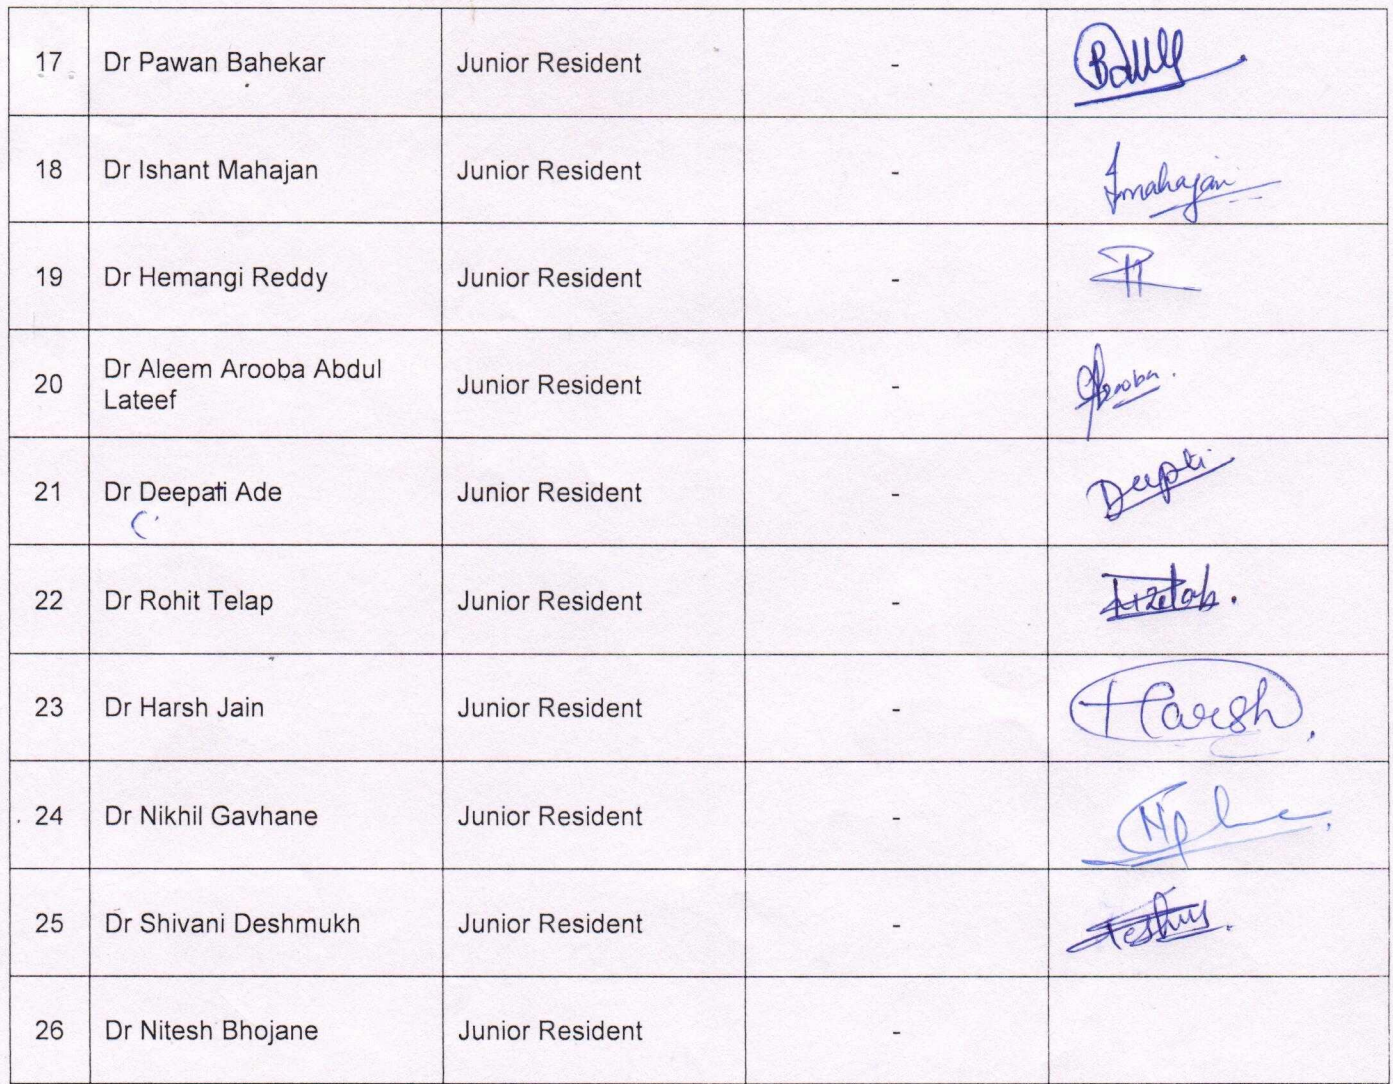 17 Dr Pawan Bahekar Junior Resident -
18 Dr Ishant Mahajan Junior Resident - Imahajan
19 Dr Hemangi Reddy Junior Resident -
20 Dr Aleem Arooba Abdul
Lateef Junior Resident - Arooba.
21 Dr Deepati Ade Junior Resident - Deepti
22 Dr Rohit Telap Junior Resident -
23 Dr Harsh Jain Junior Resident - Harsh
24 Dr Nikhil Gavhane Junior Resident -
25 Dr Shivani Deshmukh Junior Resident -
26 Dr Nitesh Bhojane Junior Resident -